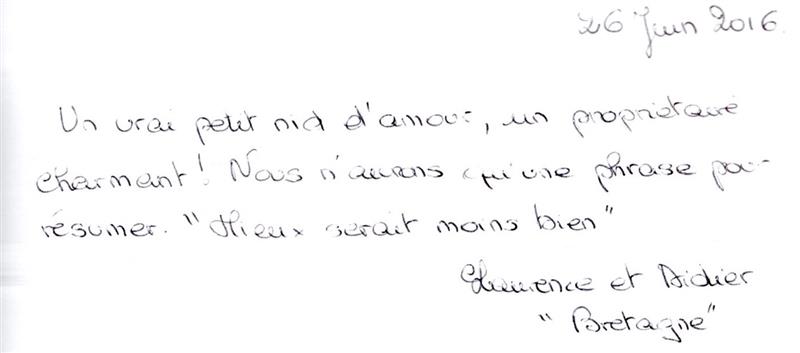 26 Juin 2016
Un vrai petit nid d'amour, un propriétaire
charmant! Nous n'aurons qu'une phrase pour
résumer. "Mieux serait moins bien"
et Didier
"Bretagne"